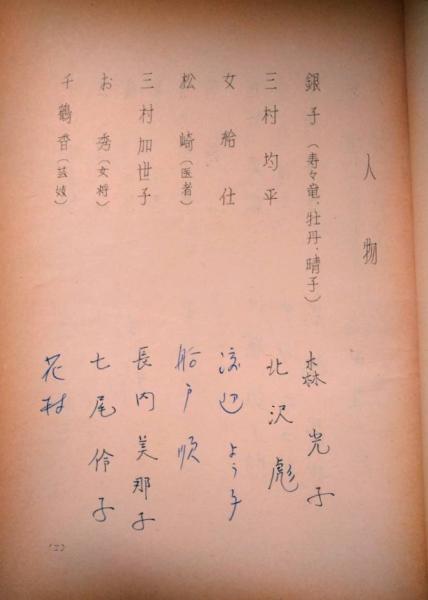 人物
銀子（寿々竜、牡丹、晴子） 森光子
三村均平 北沢彪
女給仕 渡辺よう子
松崎（医者） 船戸順
三村加世子 長内美那子
お秀（女将） 七尾伶子
千鶴香（芸妓） 花村
(2)